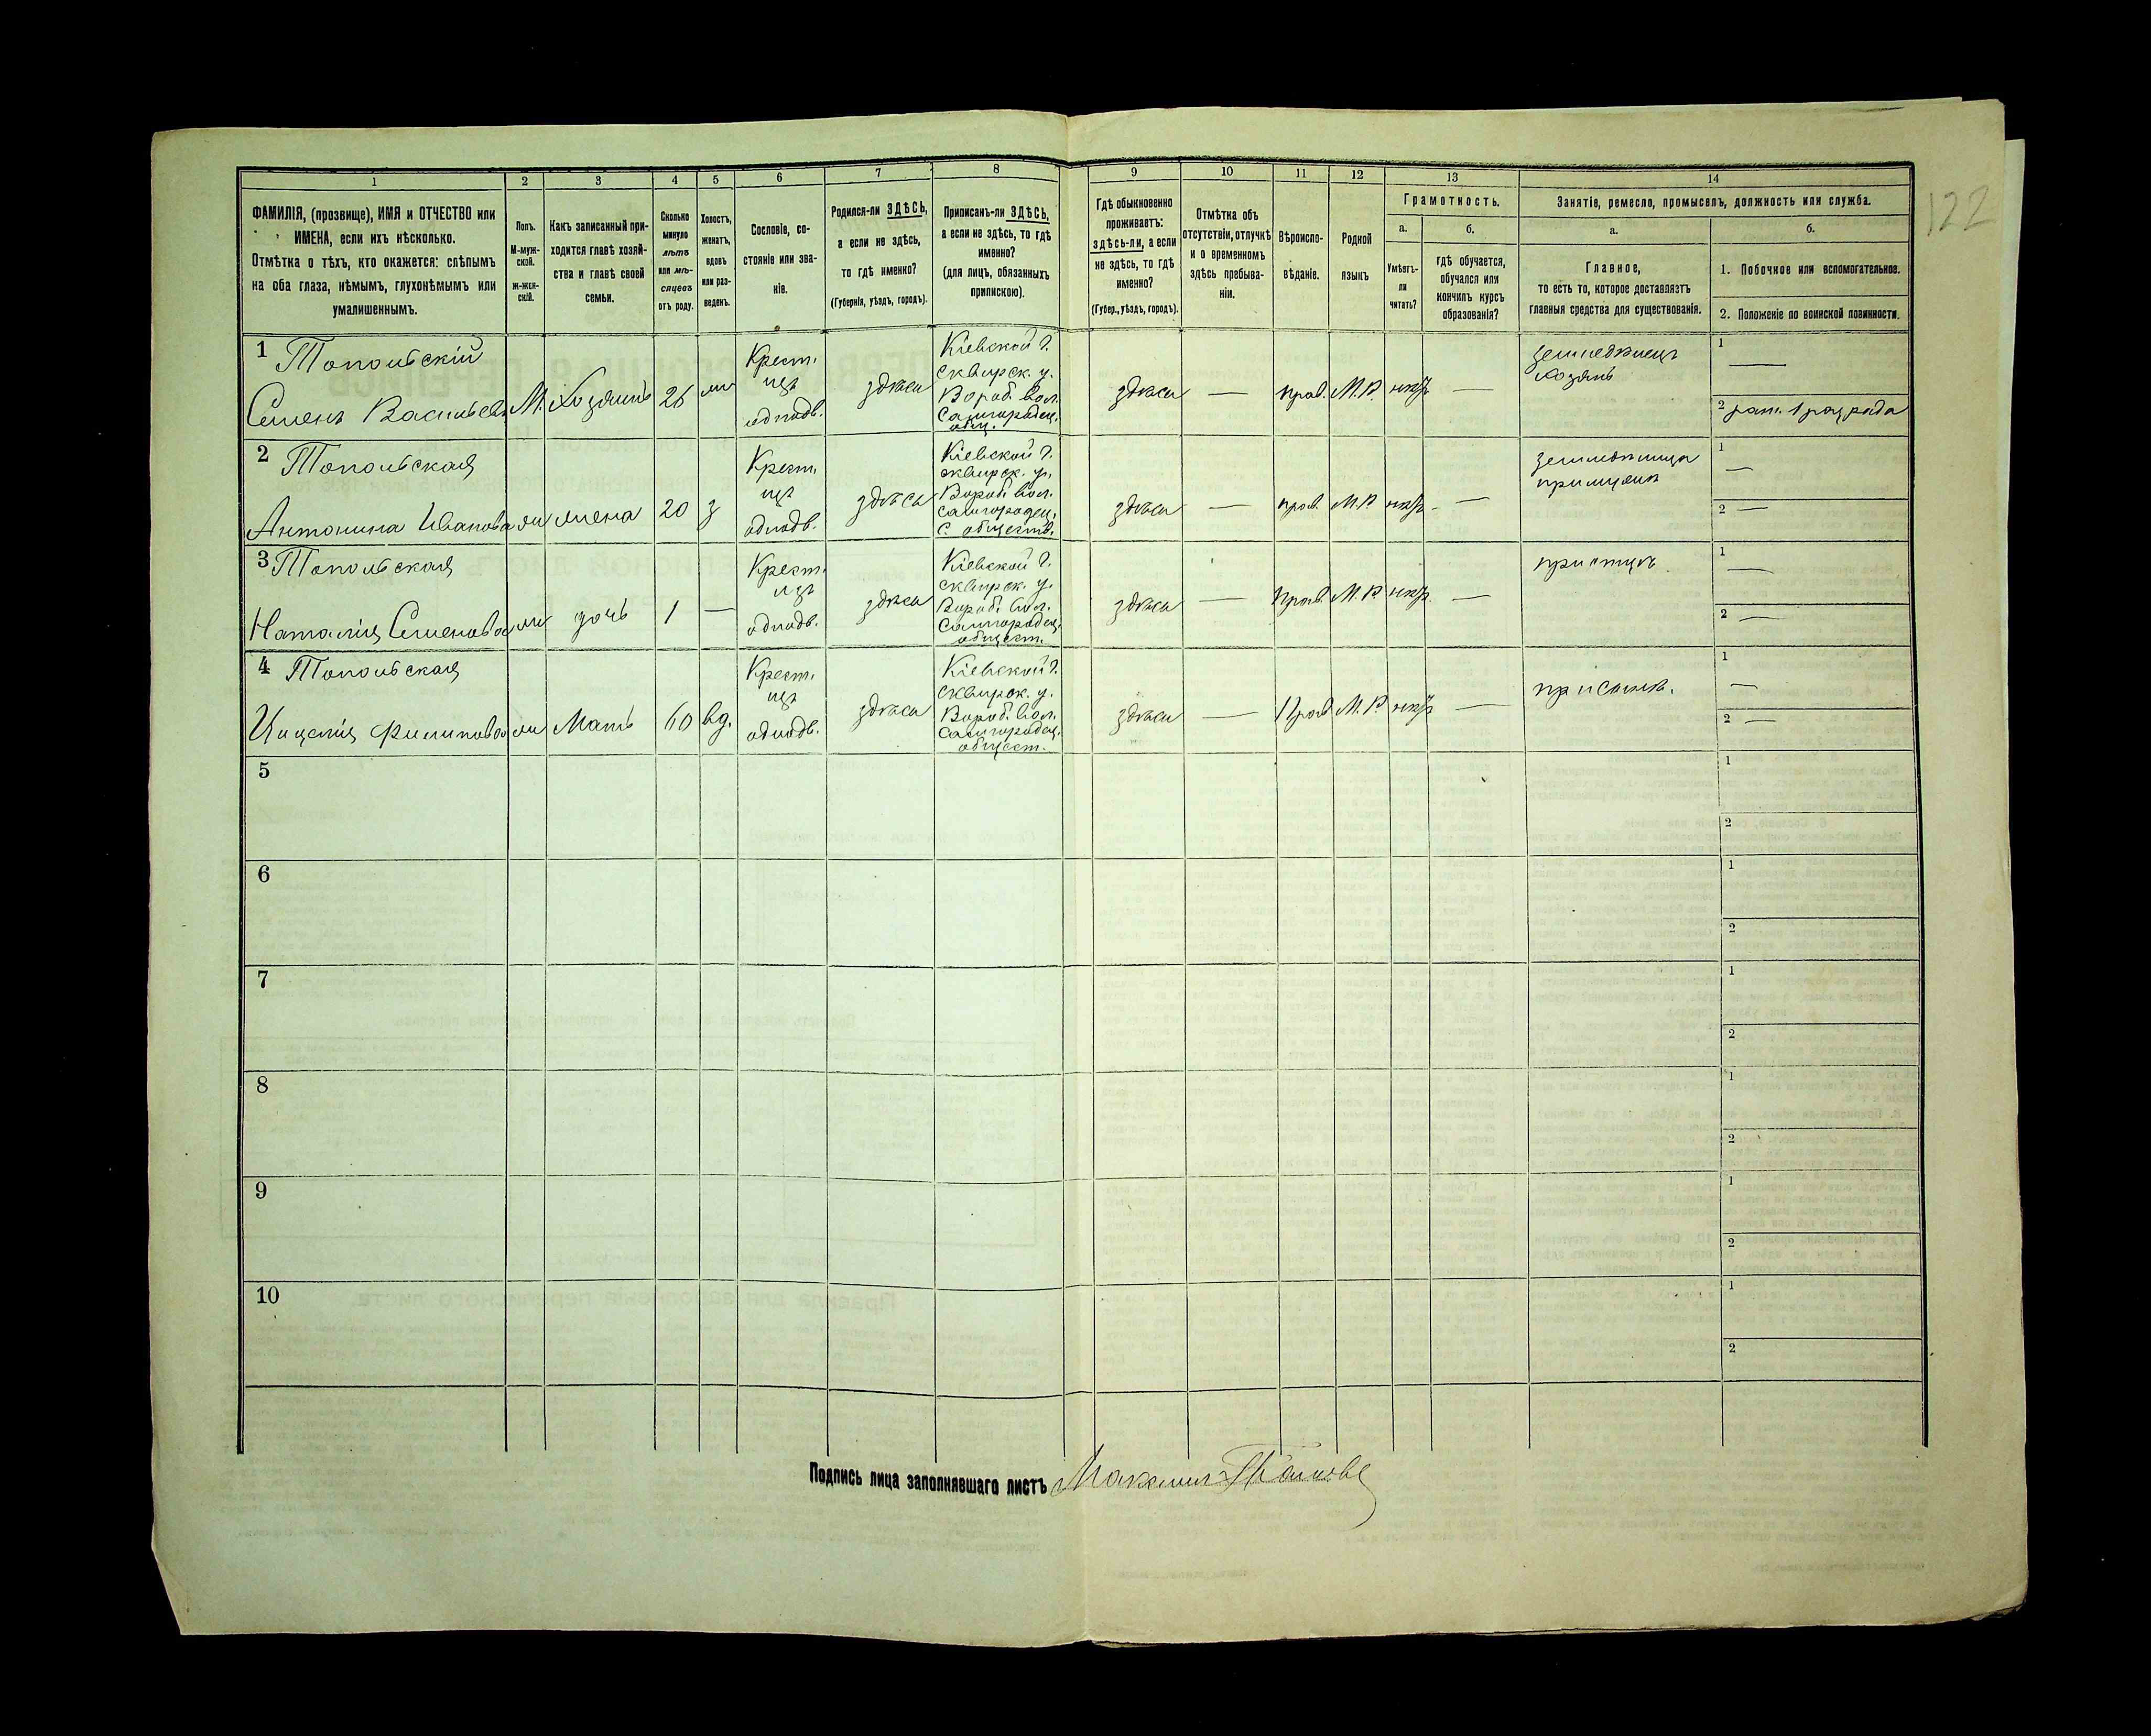 122
1 2 3 4 5 6 7 8 9 10 11 12 13 14
ФАМИЛІЯ, (прозвище), ИМЯ и ОТЧЕСТВО или
ИМЕНА, если ихъ нѣсколько.
Отмѣтка о тѣхъ, кто окажется: слѣпымъ
на оба глаза, нѣмымъ, глухонѣмымъ или
умалишеннымъ.
Полъ.
М-муж-
ской.
ж-жен-
скій.
Какъ записанный при-
ходится главѣ хозяй-
ства и главѣ своей
семьи.
Сколько
минуло
лѣтъ
или мѣ-
сяцевъ
отъ роду.
Холостъ,
женатъ,
вдовъ
или раз-
веденъ.
Сословіе, со-
стояніе или зва-
ніе.
Родился-ли ЗДѢСЬ,
а если не здѣсь,
то гдѣ именно?
(Губернія, уѣздъ, городъ).
Приписанъ-ли ЗДѢСЬ,
а если не здѣсь, то гдѣ
именно?
(для лицъ, обязанныхъ
припискою).
Гдѣ обыкновенно
проживаетъ:
здѣсь-ли, а если
не здѣсь, то гдѣ
именно?
(Губер., уѣздъ, городъ).
Отмѣтка объ
отсутствіи, отлучкѣ
и о временномъ
здѣсь пребыва-
ніи.
Вѣроиспо-
вѣданіе.
Родной
языкъ
Грамотность.
а.
Умѣетъ-
ли
читать?
б.
гдѣ обучается,
обучался или
кончилъ курсъ
образованія?
Занятіе, ремесло, промыселъ, должность или служба.
а.
Главное,
то есть то, которое доставляетъ
главныя средства для существованія.
б.
1. Побочное или вспомогательное.
2. Положеніе по воинской повинности.
1 Топольскій
Семенъ Васильев.
М.
Хозяинъ
26
жн
Крест.
изъ
однодв.
здѣсь
Кіевской г.
сквирск. у.
Вороб. вол.
Самгородец.
общ.
здѣсь
—
прав.
М.Р.
нѣтъ
—
земледѣлецъ
хозяинъ
1 —
2 рат. 1 разряда
2 Топольская
Антонина Иванова
ж
жена
20
з
Крест.
изъ
однодв.
здѣсь
Кіевской г.
сквирск. у.
Вороб. вол.
самгородец.
с. обществ.
здѣсь
—
прав.
М.Р.
нѣтъ
—
земледѣлица
при мужѣ
1 —
2 —
3 Топольская
Наталія Семенова
ж
дочь
1
—
Крест.
изъ
однодв.
здѣсь
Кіевской г.
сквирск. у.
Вороб. вол.
Самгородец.
общест.
здѣсь
—
прав.
М.Р.
нѣтъ
—
при отцѣ
1 —
2 —
4 Топольская
Филипова
ж
Мать
60
вд.
Крест.
изъ
однодв.
здѣсь
Кіевской г.
сквирск. у.
Вороб. вол.
Самгородец.
общест.
здѣсь
—
Прав.
М.Р.
нѣтъ
—
при сынѣ.
1 —
2 —
5
1
2
6
1
2
7
1
2
8
1
2
9
1
2
10
1
2
Подпись лица заполнявшаго листъ